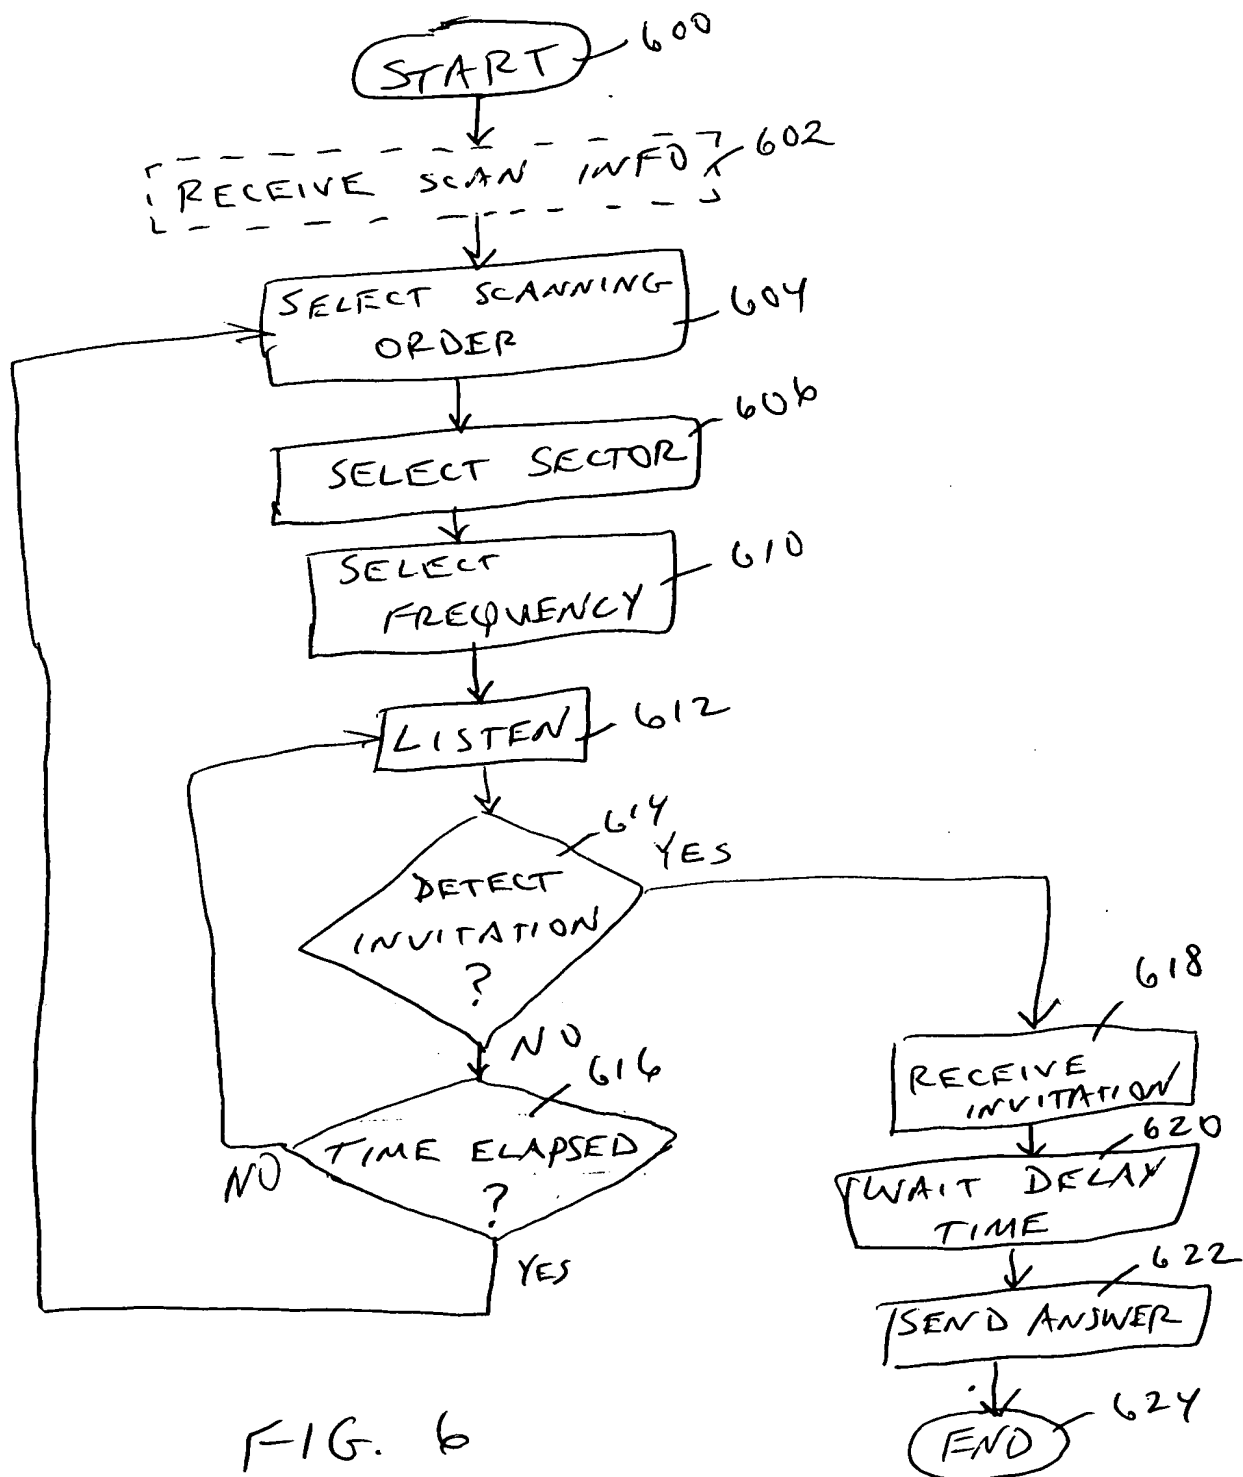 START
600
RECEIVE SCAN INFO
602
SELECT SCANNING
ORDER
604
SELECT SECTOR
606
SELECT
FREQUENCY
610
LISTEN
612
614
YES
DETECT
INVITATION
?
NO
616
TIME ELAPSED
?
NO
YES
618
RECEIVE
INVITATION
620
WAIT DELAY
TIME
622
SEND ANSWER
END
624
FIG. 6